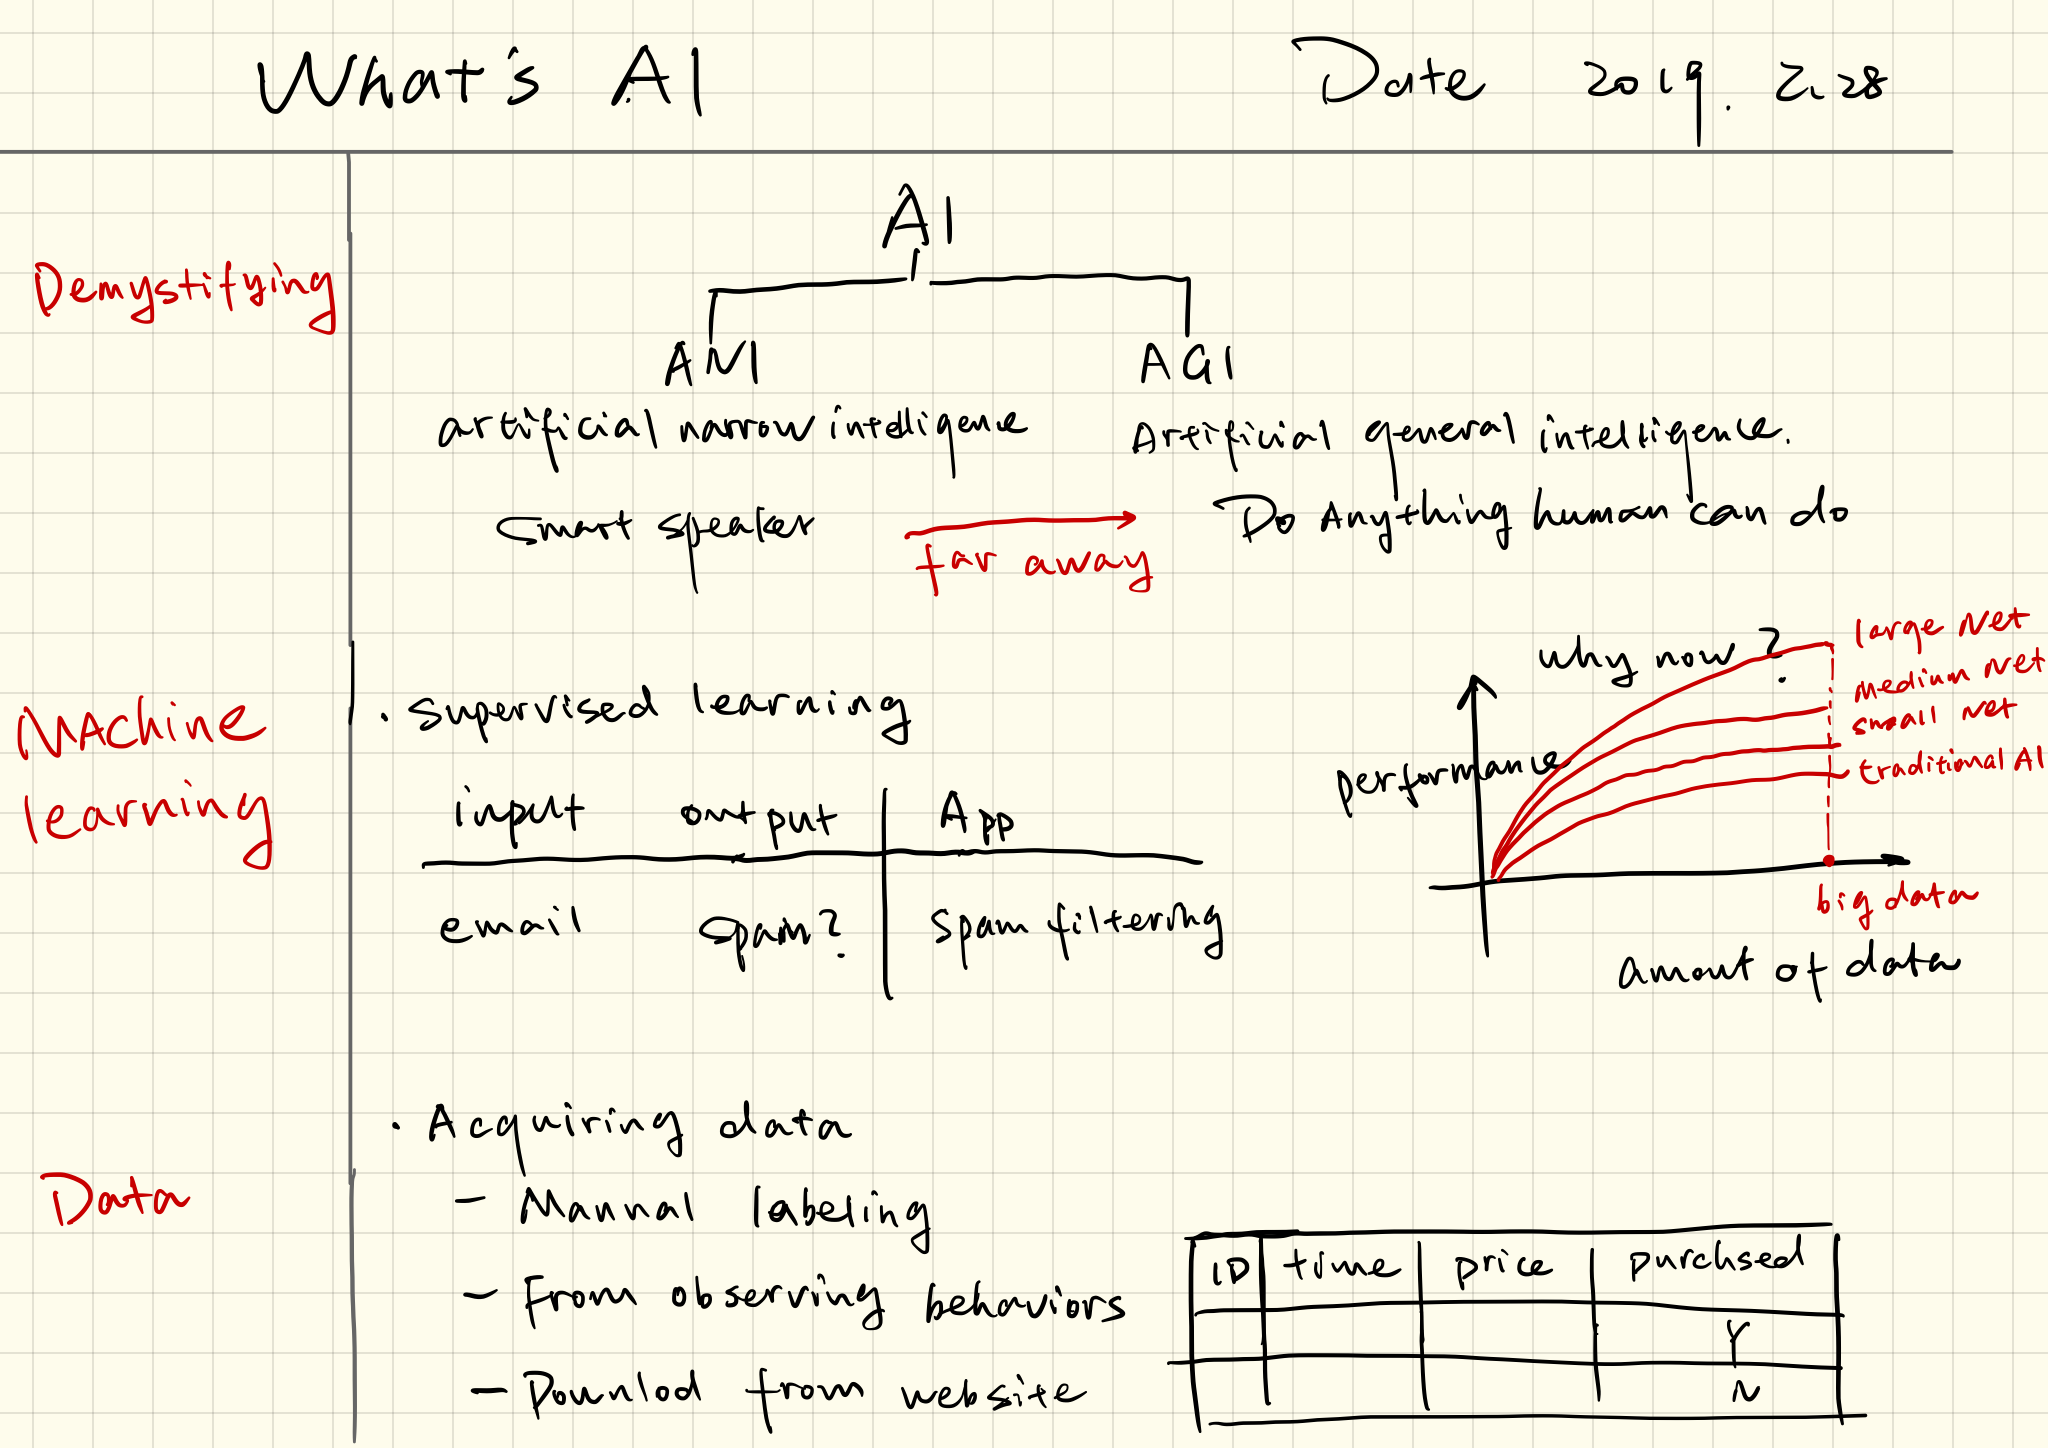 What's AI
Date 2019. 2.28
Demystifying
AI
ANI
AGI
artificial narrow intelligence
Artificial general intelligence.
smart speaker
far away
Do Anything human can do
Machine
learning
. Supervised learning
input output App
email spam? Spam filtering
why now?
large Net
medium Net
small Net
traditional AI
performance
big data
amout of data
Data
. Acquiring data
- Manual labeling
- From observing behaviors
- Downlod from website
ID time price purchsed
Y
N